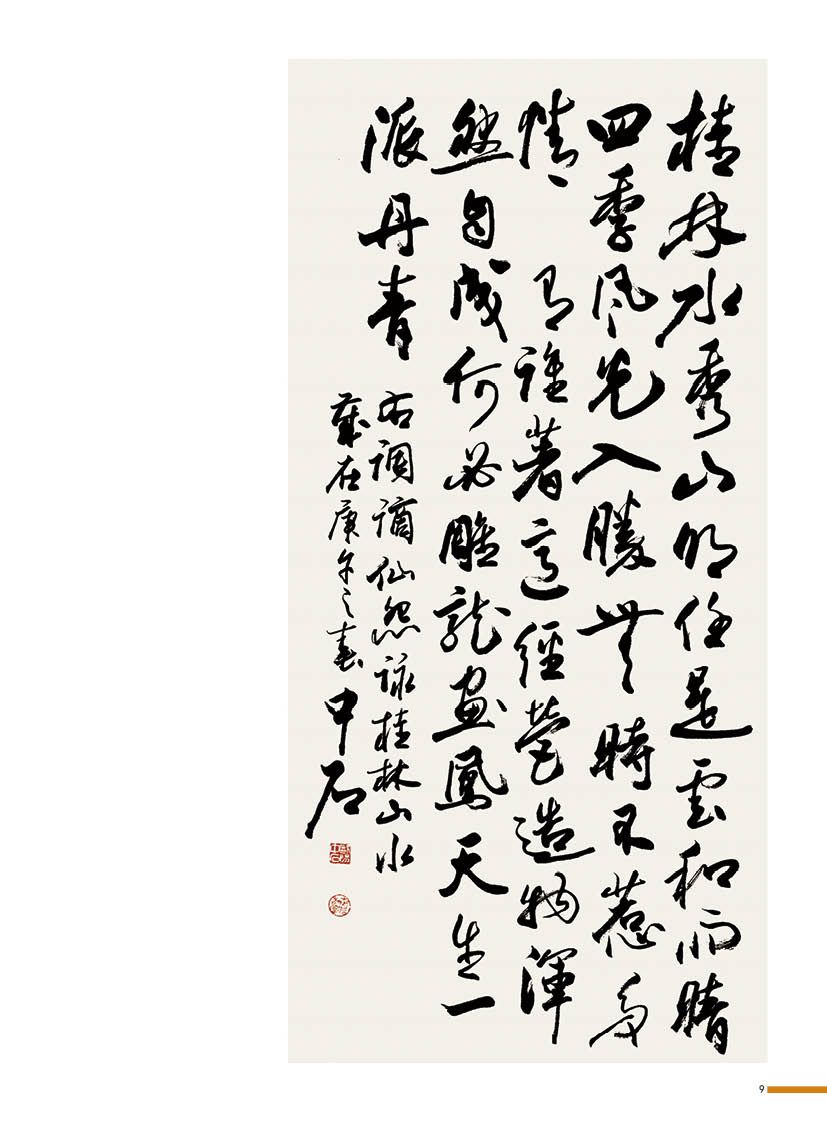 桂林水秀山明任是雲和雨晴
四季風光入勝無時不惹多
情 有誰著意經營造物渾
然自成何必雕龍畫鳳天生一
派丹青
右調謫仙怨詠桂林山水
歲在庚午之春中石
9